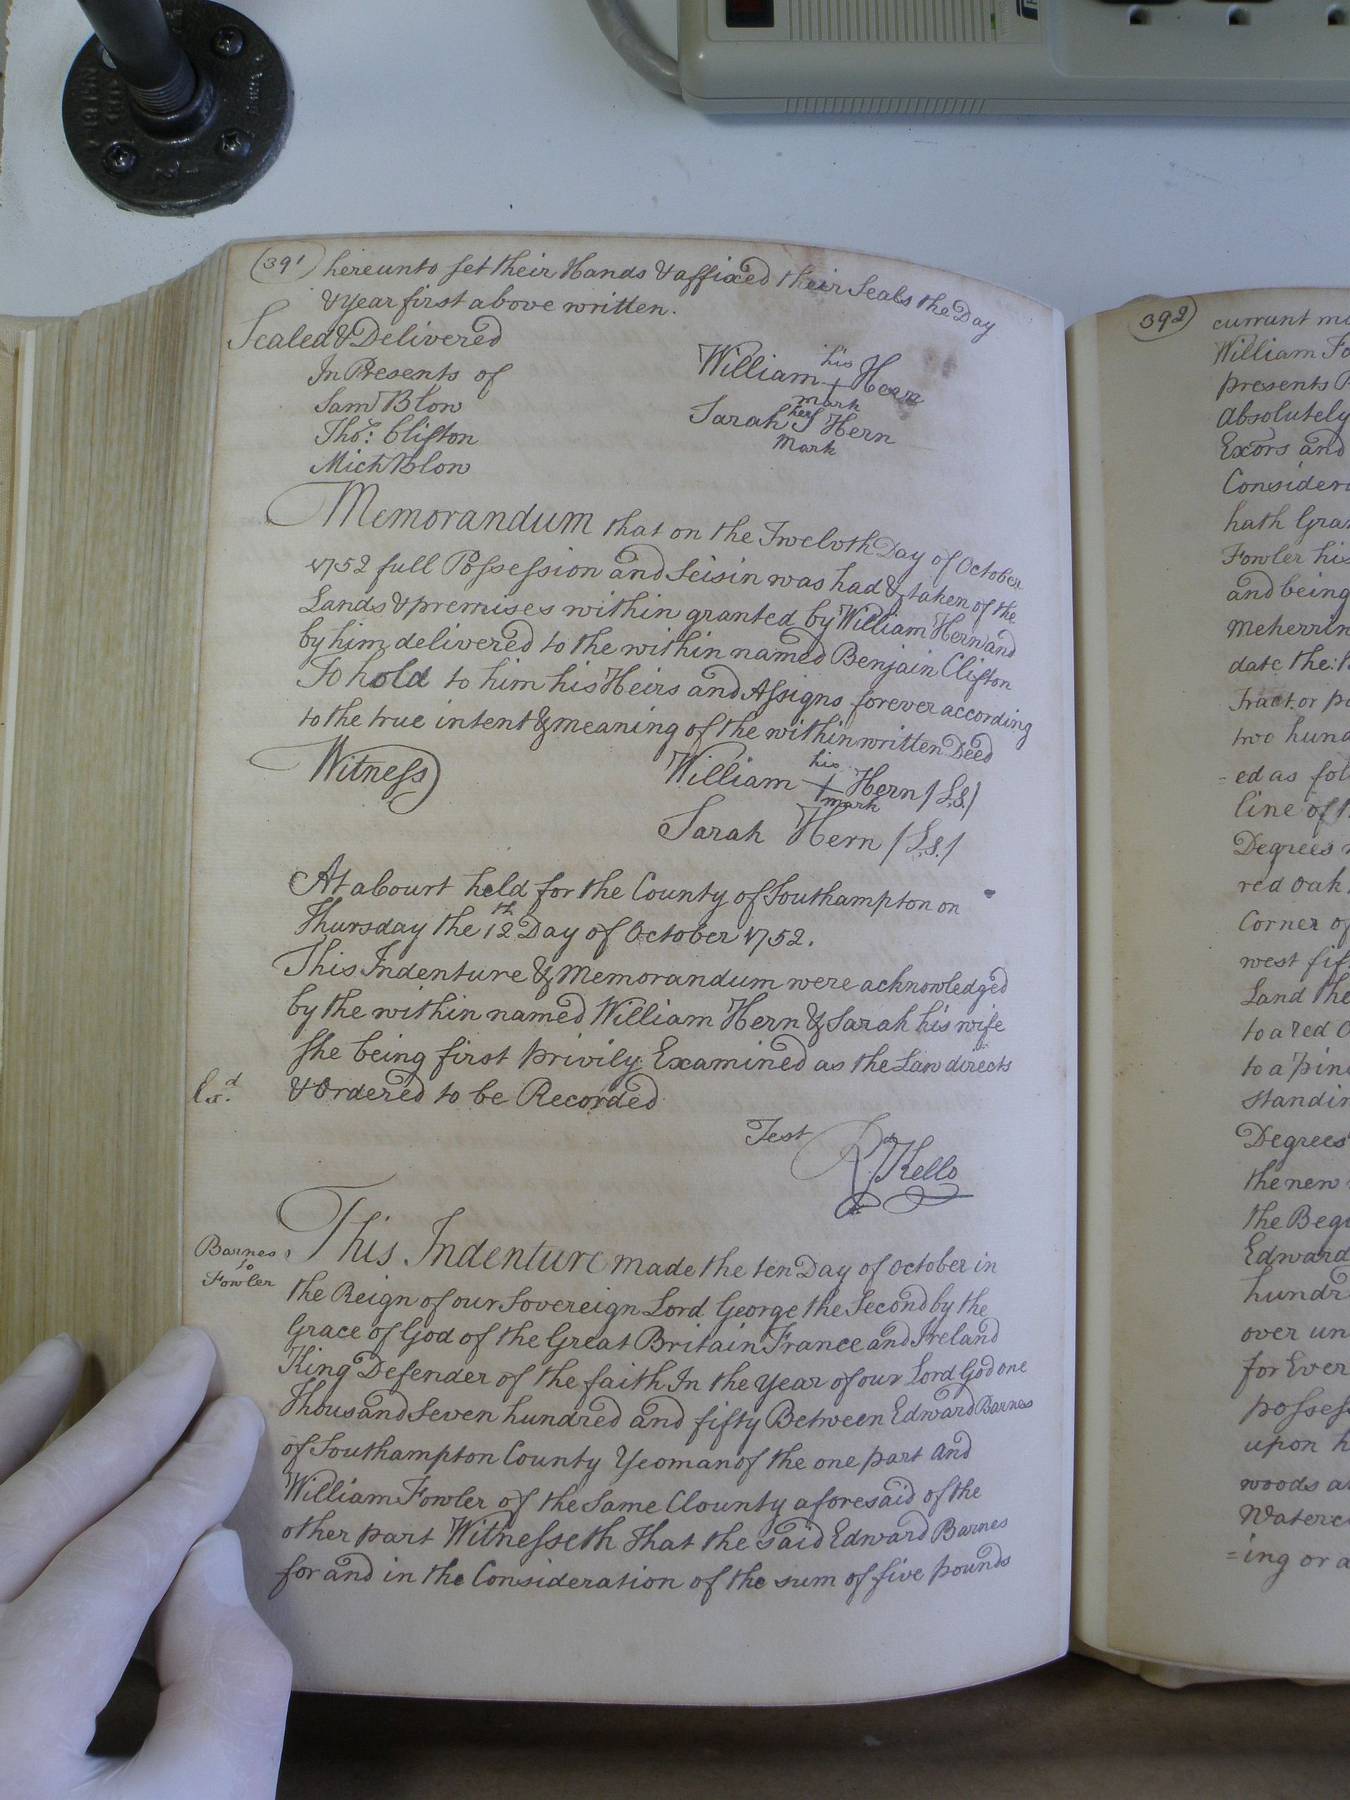 (391) hereunto set their Hands & affixed their Seals the Day
& Year first above written.
Sealed & Delivered
In Presents of
Sam.l Blow
Tho.s Clifton
Mich Blow
William his + mark Hern
Sarah her S mark Hern
Memorandum that on the Twelvth Day of October
1752 full Possession and Seisin was had & taken of the
Lands & premises within granted by William Hern and
by him delivered to the within named Benjain Clifton
To hold to him his Heirs and Assigns forever according
to the true intent & meaning of the within written Deed
Witness
William his + mark Hern (L.S.)
Sarah Hern (L.S.)
At a Court held for the County of Southampton on
Thursday the 12th Day of October 1752.
This Indenture & Memorandum were acknowledged
by the within named William Hern & Sarah his wife
She being first privily Examined as the Law directs
& Ordered to be Recorded
Test
R.d Kello
Barnes
to
Fowler
This Indenture made the ten Day of October in
the Reign of our Sovereign Lord George the Second by the
Grace of God of the Great Britain France and Ireland
King Defender of the faith In the Year of our Lord God one
Thousand Seven hundred and fifty Between Edward Barnes
of Southampton County Yeoman of the one part And
William Fowler of the Same Clounty aforesaid of the
other part Witnesseth That the said Edward Barnes
for and in the Consideration of the sum of five pounds
(392) currunt
William
presents
Absolutely
Exors and
hath
Fowler his
and being
Meherrin
date the
Tract or
two
=ed as
line of
Degrees
red Oak
Corner of
west
Land the
to a red
to a
Degrees
the new
the
Edward
over
for Ever
upon
woods
=ing or